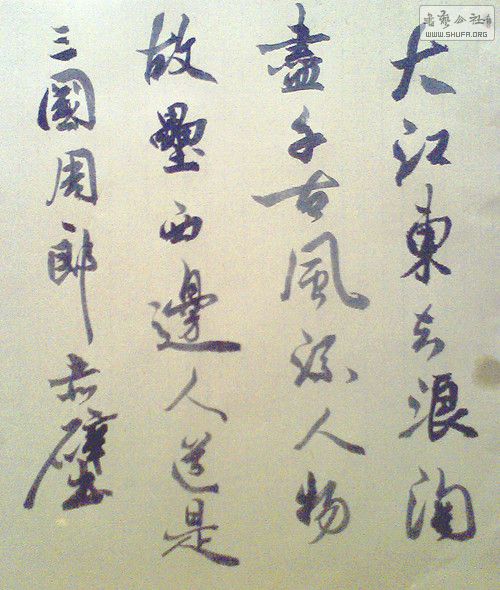 大江東去浪淘
盡千古風流人物
故壘西邊人道是
三國周郎赤壁
書藝公社
WWW.SHUFA.ORG